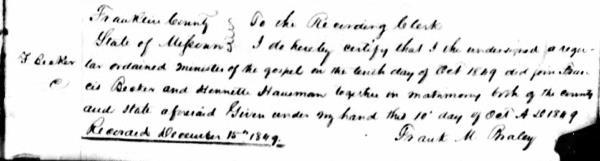 Franklin County } To the Recording Clerk
State of Missouri } I do hereby certify that I the undersigned a regu-
F Becker
lar ordained minister of the gospel on the tenth day of Oct 1849 did join Fran-
cis Becker and Hennette Hausman together in matrimony both of the county
and state aforesaid Given under my hand this 10th day of Oct A D 1849
Recorded December 15th 1849. Frank M.